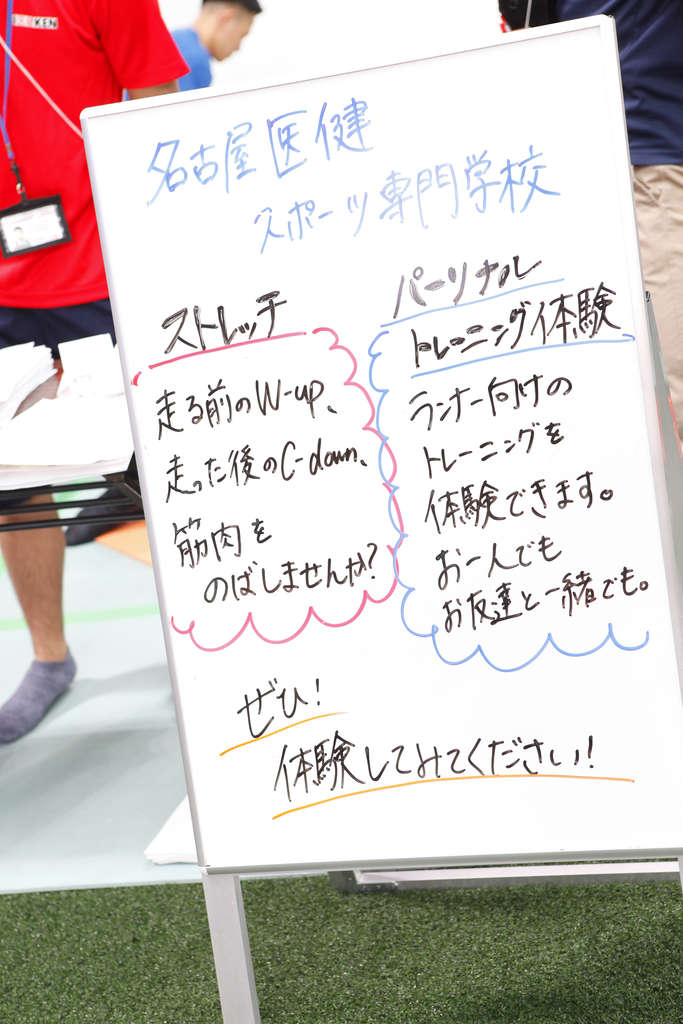 KEN
名古屋医健
スポーツ専門学校
ストレッチ
走る前のW-up、
走った後のC-down、
筋肉を
のばしませんか?
パーソナル
トレーニング体験
ランナー向けの
トレーニングを
体験できます。
お一人でも
お友達と一緒でも。
ぜひ!
体験してみてください!